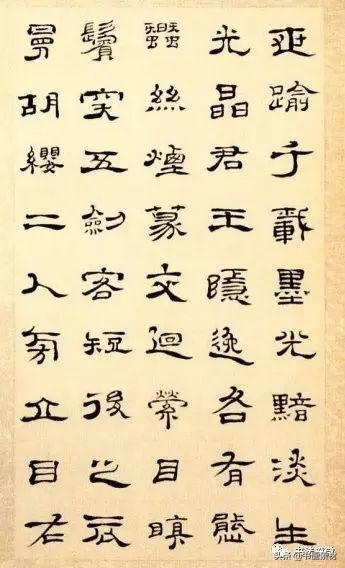 踰千載墨光黯淡生
光晶君王隱逸各有態
蠶絲煙篆交迴縈目瞋
鬢突五劍客短後之衣
曼胡纓二人旁立目右